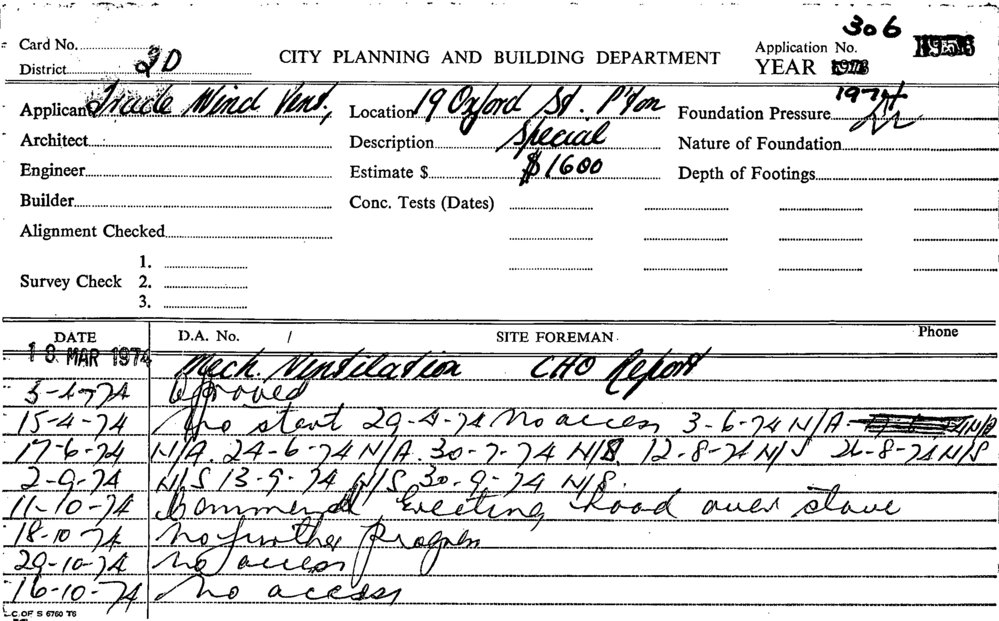 306
Card No.
Application No.
District 2D
CITY PLANNING AND BUILDING DEPARTMENT
YEAR
1974
Applicant Wind Vent,
Location 19 Oxford St. P'ton
Foundation Pressure
Architect
Description Special
Nature of Foundation
Engineer
Estimate $ $1600
Depth of Footings
Builder
Conc. Tests (Dates)
Alignment Checked
Survey Check 1.
2.
3.
DATE D.A. No. / SITE FOREMAN Phone
18 MAR 1974 Mech. Ventilation CHO Report
3-4-74 Approved
15-4-74 No start 29-4-74 No access 3-6-74 N/A
17-6-74 N/A. 24-6-74 N/A. 30-7-74 N/S. 12-8-74 N/S 26-8-74 N/S
2-9-74 N/S 13-9-74 N/S 30-9-74 N/S.
11-10-74 Commenced Erecting hood over stove
18-10-74 No further Progress
29-10-74 No access
16-10-74 No access
C. OF S 6760 T6